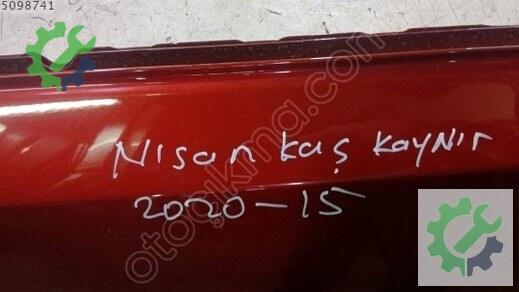 5098741
Nısan kaş kaynır
2020-15
otoçıkma.com